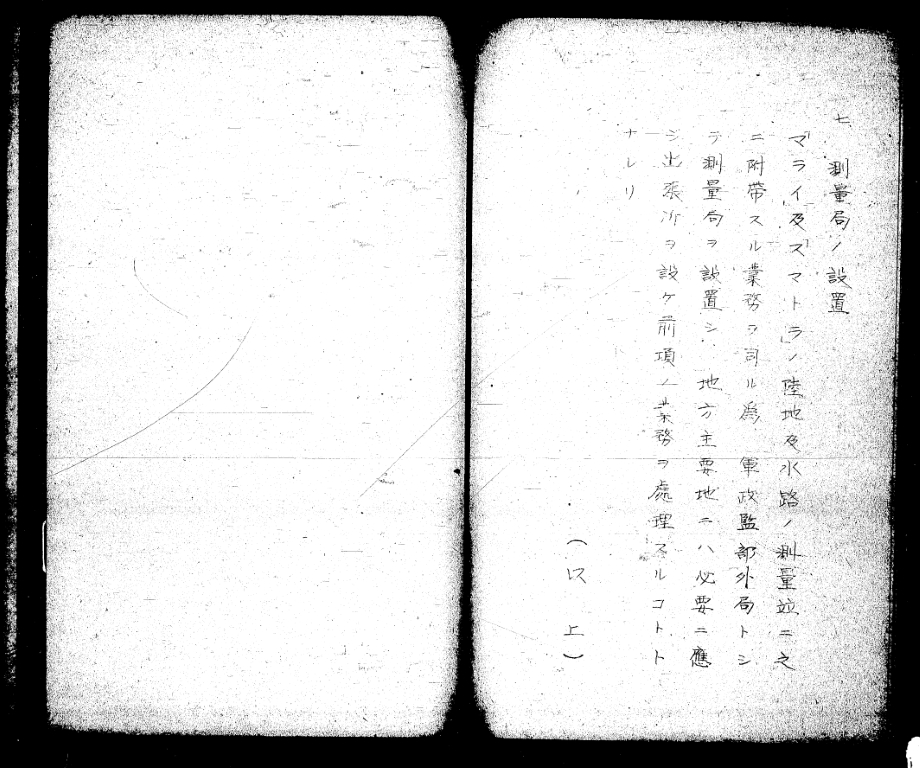 七　測量局ノ設置
マライ及スマトラノ陸地及水路ノ測量竝ニ之
ニ附帶スル業務ヲ司ル爲　軍政監部外局トシ
テ測量局ヲ設置シ　地方主要地ニハ必要ニ應
ジ出張所ヲ設ケ前項ノ業務ヲ處理スルコトト
ナレリ
（以上）